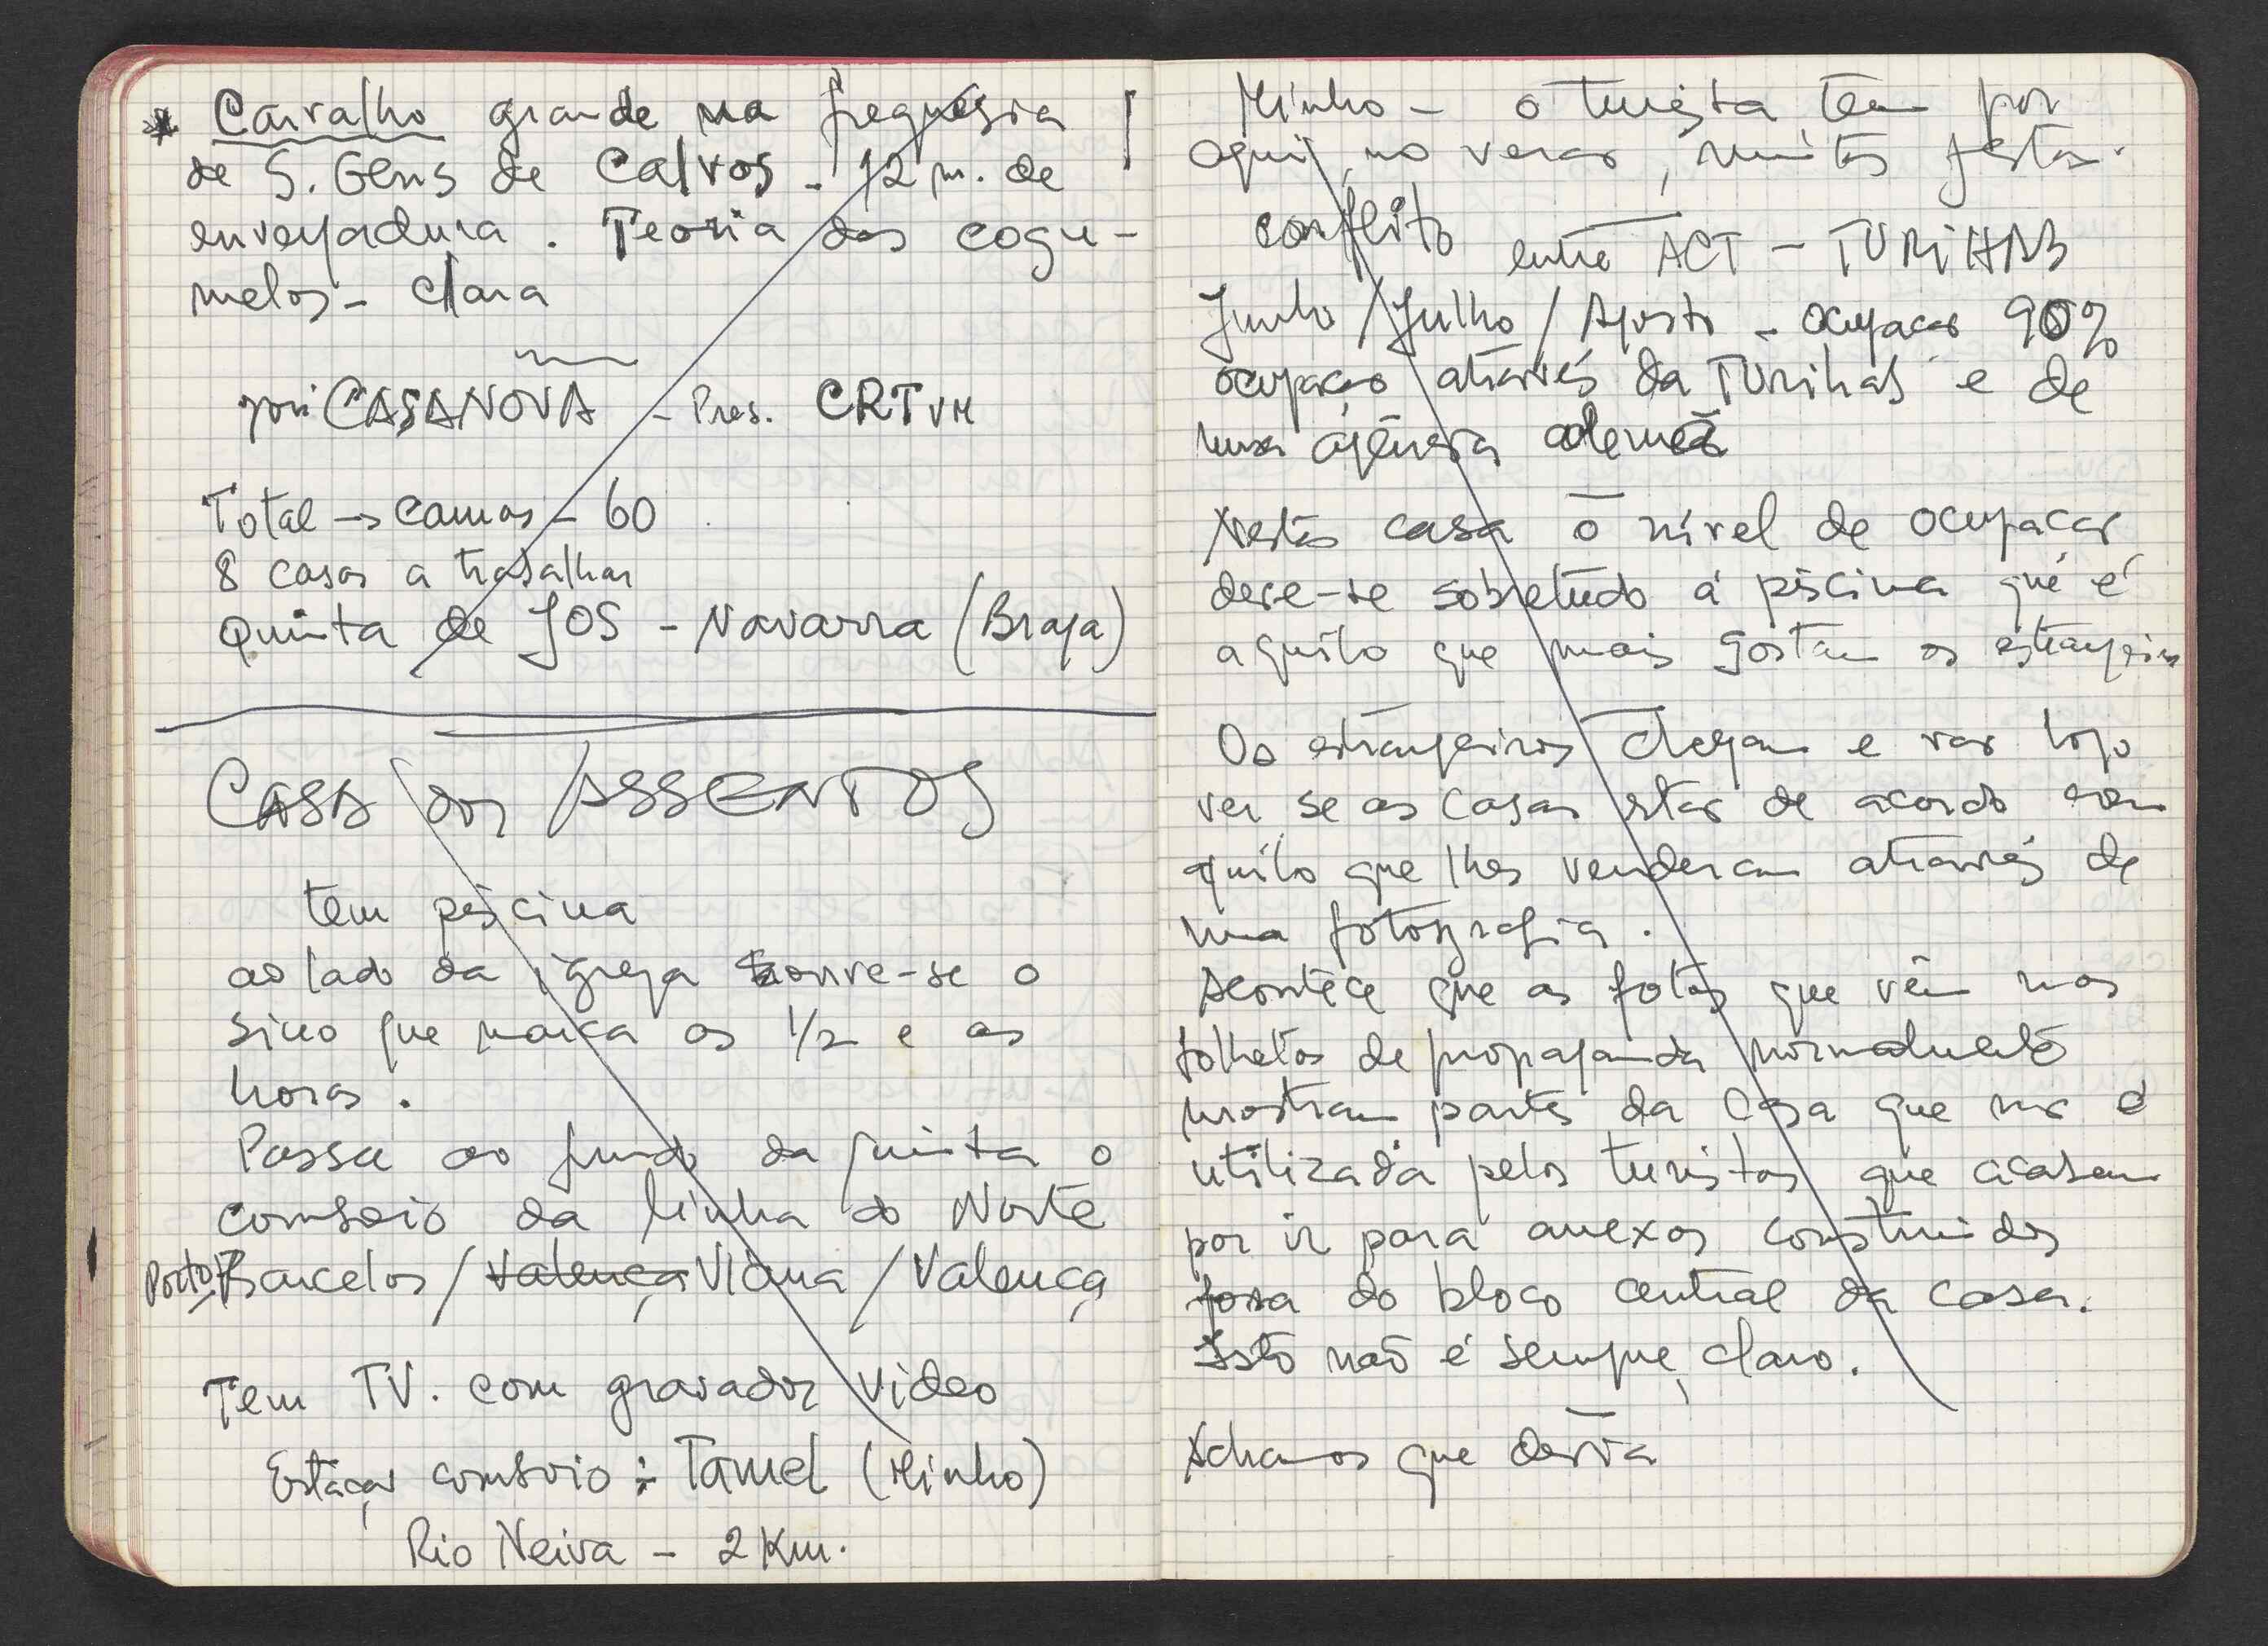 * Carvalho grande na freguesia
de S. Gens de Calvos - 12 m. de
envergadura. Teoria dos cogu-
melos - clara
José CASANOVA - Pres. CRTVM
Total → camas - 60
8 casas a trabalhar
Quinta de JOS - Navarra (Braga)
CASA dos ASSENTOS
tem piscina
ao lado da igreja houve-se o
sino que marca as 1/2 e as
horas.
Passa ao fundo da quinta o
comboio da linha do Norte
Porto/Barcelos/Valença Viana/Valença
Tem TV. com gravador video
Estação comboio: Tamel (Minho)
Rio Neiva - 2 Km.
Minho - o turista tem por
aqui, no verão, muitas festas.
conflito entre ACT - TURIHAB
Junho/Julho/Agosto - ocupação 90%
ocupação através da Turihab e de
uma agência alemã
Nesta casa o nível de ocupação
deve-se sobretudo à piscina que é
aquilo que mais gostam os estrangeiros
Os estrangeiros chegam e vão logo
ver se as casas estão de acordo com
aquilo que lhes venderam através de
uma fotografia.
Acontece que as fotos que vêm nos
folhetos de propaganda normalmente
mostram partes da casa que não é
utilizada pelos turistas que acabam
por ir para anexos construidos
fora do bloco central da casa.
Isto não é sempre claro.
Achamos que devia